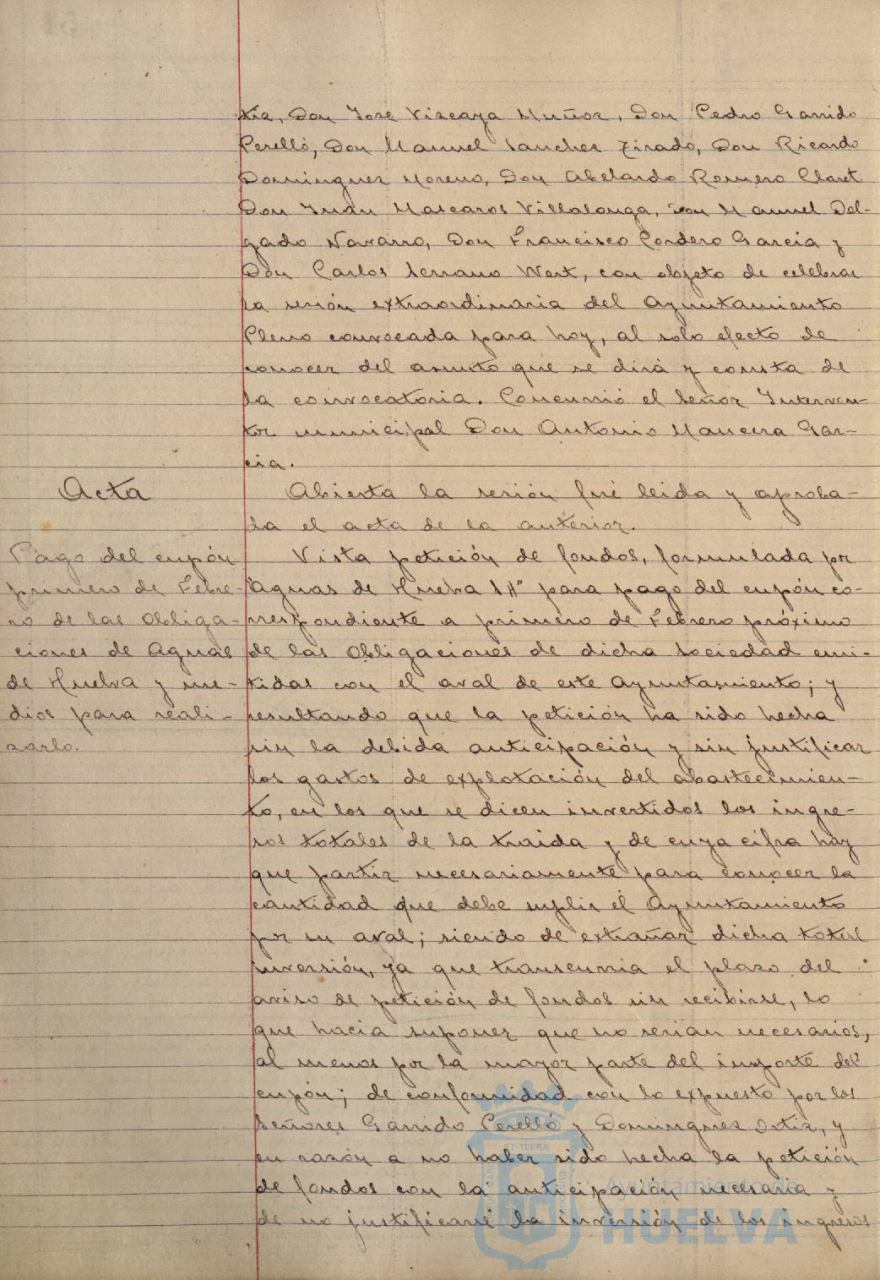 tiz, Don José Vizcaya Muñoz, Don Pedro Garrido
Perelló, Don Manuel Sanchez Tirado, Don Ricardo
Dominguez Moreno, Don Abelardo Romero Claret
Don Juan Mascaros Villalonga, Don Manuel Del-
gado Navarro, Don Francisco Cordero Garcia y
Don Carlos Serrano Wert, con objeto de celebrar
la sesión extraordinaria del Ayuntamiento
Pleno convocada para hoy, al solo efecto de
conocer del asunto que se dirá y consta de
la convocatoria. Concurrió el Señor Interven-
tor municipal Don Antonio Mancera Gar-
cia.
Acta
Abierta la sesión fué leida y aproba-
da el acta de la anterior.
Pago del cupón
primero de Febre-
ro de las Obliga-
ciones de Aguas
de Huelva y me-
dios para reali-
zarlo.
Vista petición de fondos, formulada por
"Aguas de Huelva SA" para pago del cupón co-
rrespondiente a primero de Febrero próximo
de las Obligaciones de dicha Sociedad emi-
tidas con el aval de este Ayuntamiento; y
resultando que la petición ha sido hecha
sin la debida anticipación y sin justificar
los gastos de explotación del abastecimien-
to, en los que se dicen invertidos los ingre-
sos totales de la traida y de cuya cifra hay
que partir necesariamente para conocer la
cantidad que debe suplir el Ayuntamiento
por su aval; siendo de extrañar dicha total
inversión, ya que transcurria el plazo del
aviso de petición de fondos sin recibirse, lo
que hacia suponer que no serian necesarios,
al menos por la mayor parte del importe del
cupón; de conformidad con lo expuesto por los
Señores Garrido Perelló y Dominguez Ortiz, y
en razón a no haber sido hecha la petición
de fondos con la anticipación necesaria y
de no justificarse la inversión de los ingresos
Ayuntamiento de
HUELVA